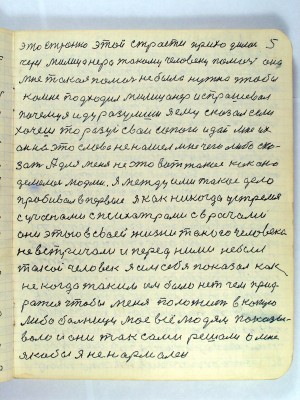 это странно этой страсти прико делам 5
чем милицанера такому человеку помочь она
мне такая помоч небыла нужна чтобы
комне подходил милицанер испрашевал
почему я иду разумиши я ему сказал если
хочеш то разуй свои сапоги и дай мне их
он на это слово не нашел мне чего либо ска-
зать А для меня не это вот такое как оно
делалось людми. Я между ими такое дело
пробивал впервые я как никогда
сучонами спсихатрами сврачами
они этого своей жизни такого человека
невстричали и перед ними небыл
такой человек я сам себя показал как
не когда таким им было нет чем прид
ратся чтобы меня положить в какую
либо больницу мое всё людям показы-
вало и они так сами решали о мне
якобы я ненармален